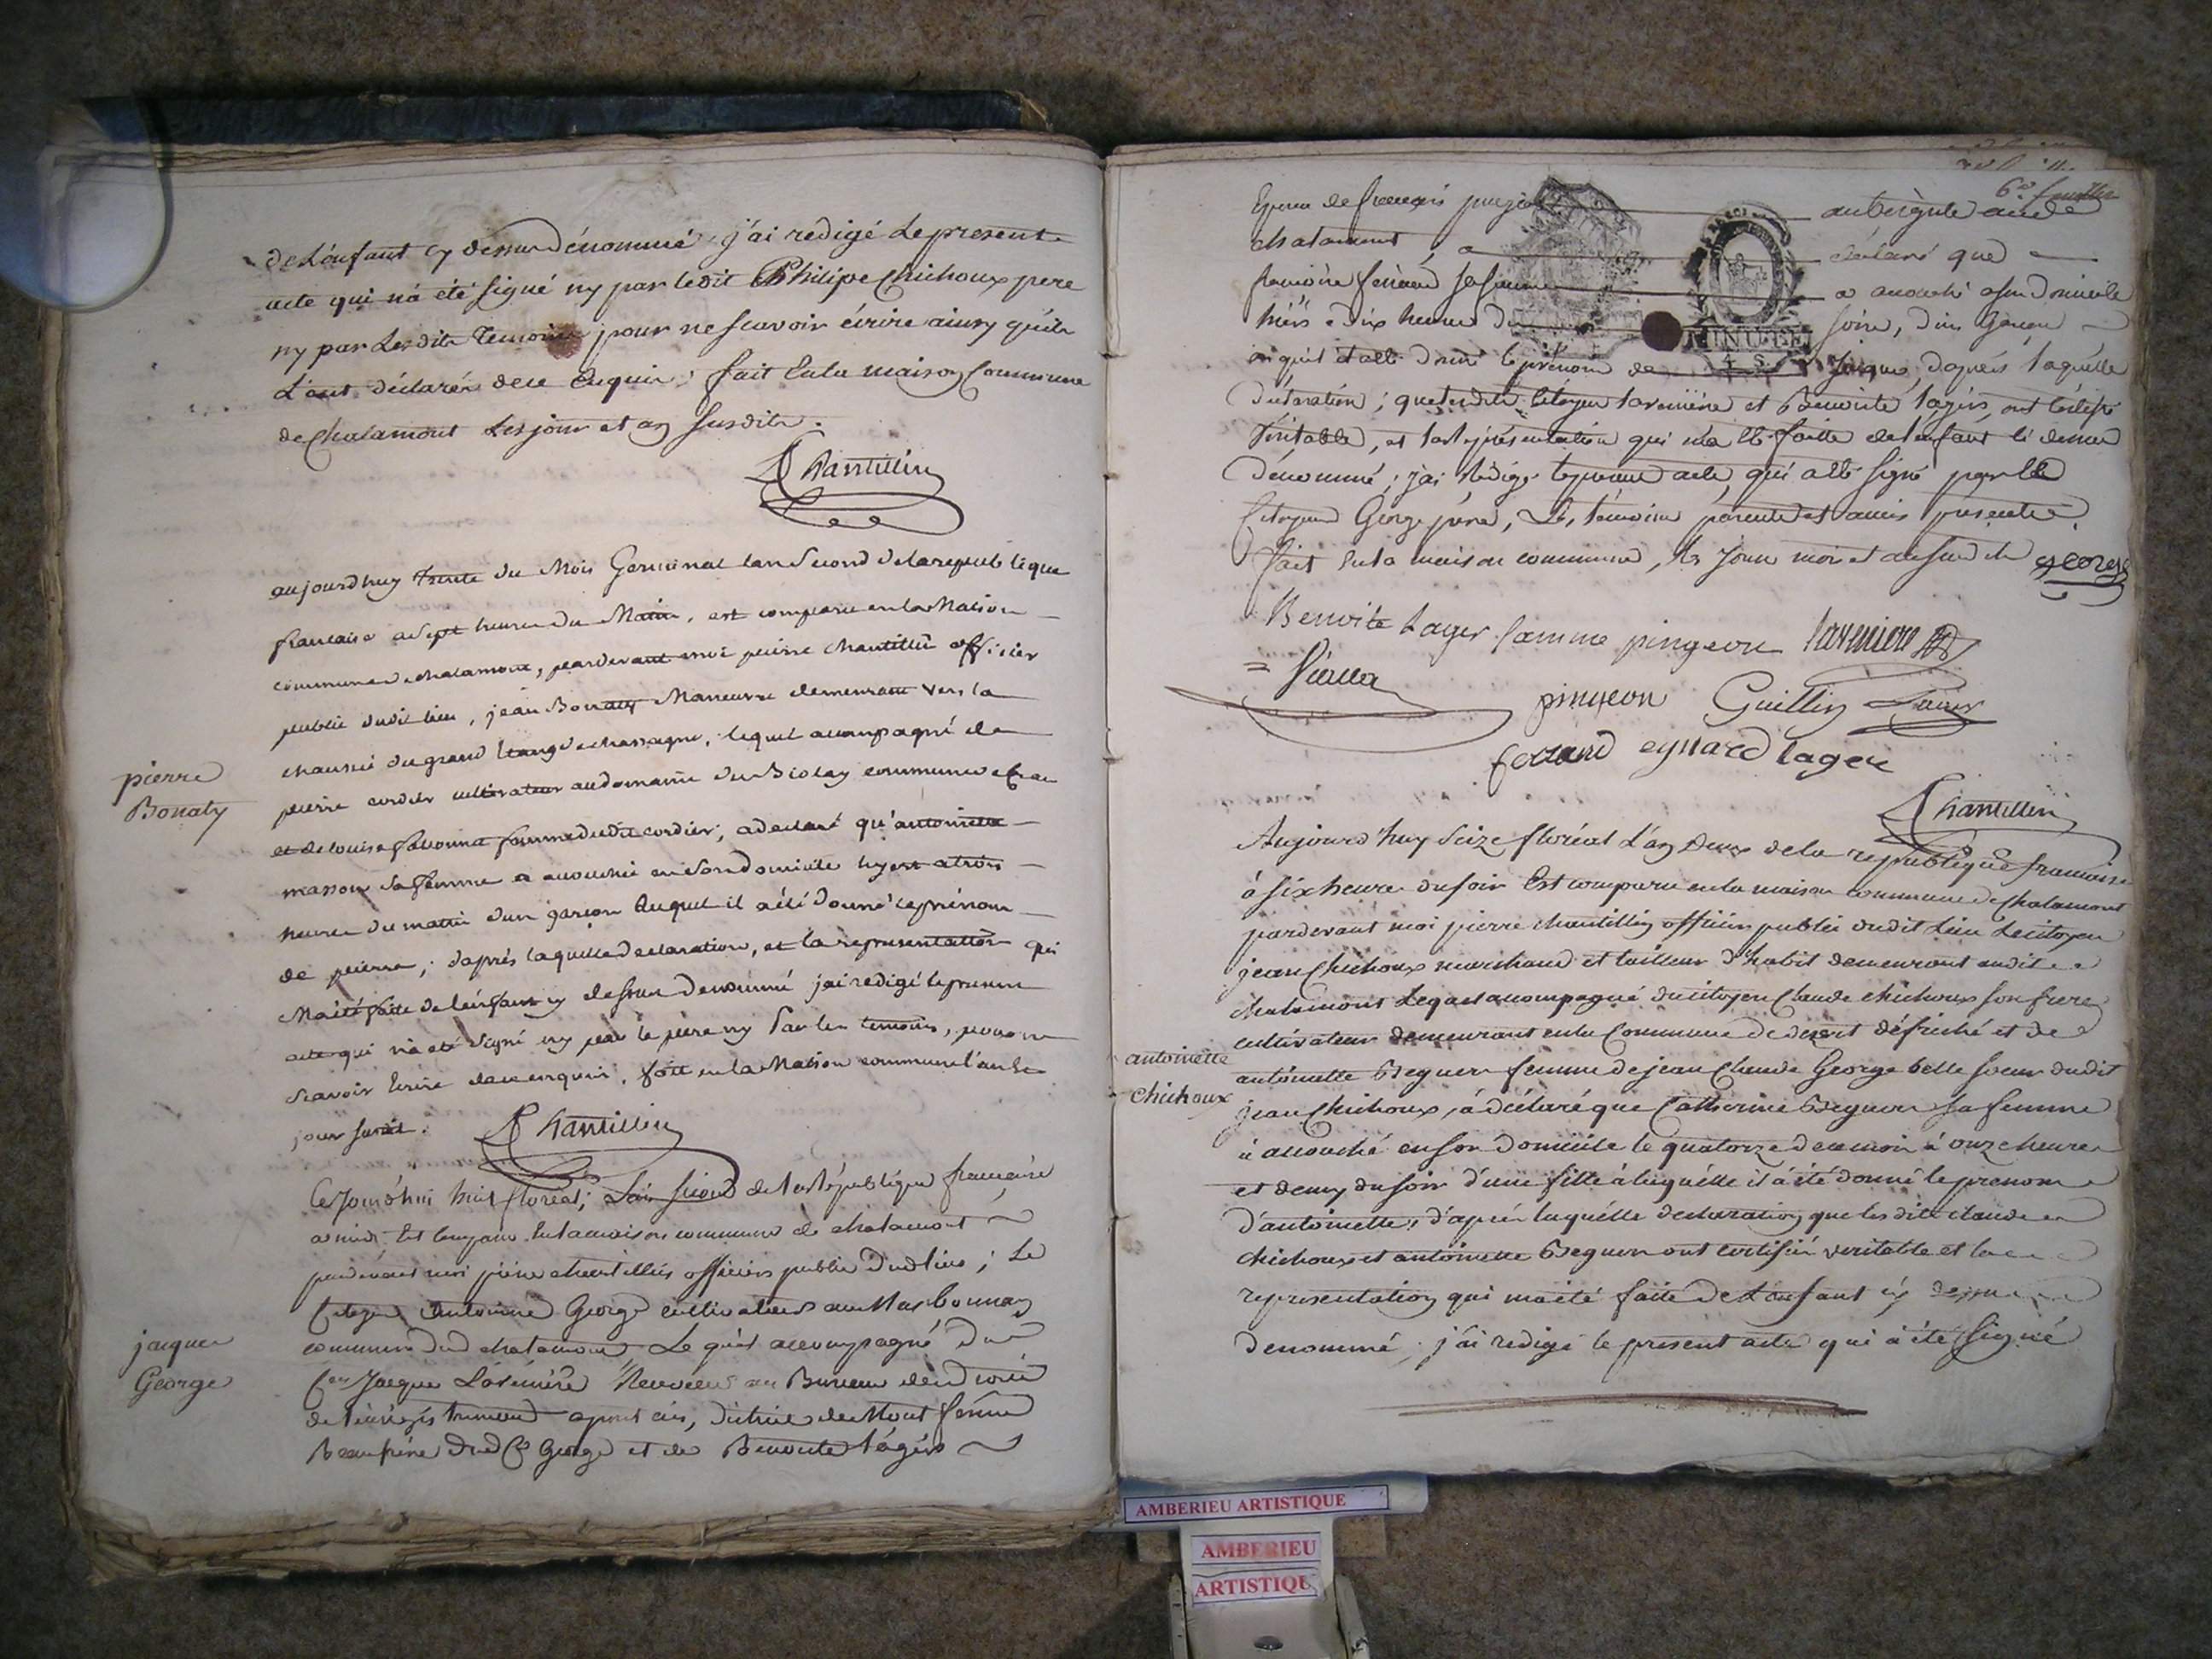 de L'enfant cy dessus dénommé, j'ai redigé Le present
acte qui n'a été signé ny par ledit Philipe Chichoux pere
ny par Lesdits Temoins pour ne scavoir écrire ainsy qu'ils
L'ont déclarés de ce Enquis; fait En la maison Commune
de Chalamont Les jour et an susdits.
Chantillin
aujourdhuy Trente du Mois Germinal lan Second de la republique
francaise a sept heures du Matin, est comparu en la Maison
commune de chalamont, pardevant moi pierre chantillin officier
public dudit lieu, jean Bonaty Maneuvre demeurant vers la
chaussée du grand Etang de chassagne, lequel acompagné de
pierre cordier cultivateur au domaine du Biolay commune
et de louise femme dudit cordier, a declaré qu'antoinette
masson sa femme a accouchée en son Domicile hyer a trois
heures du matin d'un garçon Auquel il a été donné le prénom
de pierre; d'aprés laquelle declaration, et la representation qui
M'a été faite de l'enfant cy dessus denommé jai redigé le present
acte qui n'a eté signé ny par le pere ny Par les temoins, pour ne
scavoir Ecrire de ce enquis, fait en la Maison commune l'an et
jour susdit.
Chantillin
pierre
Bonaty
Ce Jourd'hui huit floréal; L'an second de la République francaise
a midi Est Comparu En la maison commune de chalamont
pardevant moi pierre chantillin officier public dudt lieu; Le
Citoyen Antoine George cultivateur au Mas
commune dud chalamont Lequel accompagné du
Cen Jacque Receveur au Bureau de
de l'enregistrement district de Montferme
Beaufrére dud Cen George et de Benoite lager
jacque
George
6e feuillet
Epouse de francois pingeon aubergiste aude
chalamont, a déclaré que
femme a accouché a son domicile
hiérs a dix heures du soire, d'un Garçon
au quel il a été donné le prénom de Jacque, d'aprés laquelle
déclaration; que lesdits Citoyens et Benoite lager, ont Certifié
Véritable, et la représentation qui m'a été faitte de l'enfant ci dessus
dénommé; j'ai rédigé le présent acte, qui a été signé par le
Citoyen George pére, Les témoins parents et amis presents,
fait En la maison commune, les Jour mois et an susdits george
Benoite Lager famme pingeon
pingeon Guillin
eynard lager
Chantillin
Aujourd'huy Seize floréal L'an deux de la république francoise
à six heures du soir Est comparu en la maison commune de Chalamont
pardevant moi pierre chantillin officier public dudit Lieu Le citoyen
jean Chichoux marchand et tailleur d'habit demeurant audit
chalamont Lequel acompagné du citoyen Claude chichoux son frere
cultivateur demeurant en la Commune de desert défriché et de
antoinette Beguer femme de jean Claude George belle soeur dudit
jean Chichoux, à déclaré que Catherine Beguer sa femme
à accouché en son domicile le quatorze de ce mois à onze heures
et demy du soir d'une fille à laquelle il à été donné le prenom
d'antoinette; d'aprés laquélle declaration que lesdits claude
chichoux et antoinette Beguer ont certifiés veritable et la
representation qui m'a été faite de L'enfant cy dessus
denommé; j'ai redigé le present acte qui à été signé
antoinette
Chichoux
MINUTE
4 S.
AMBERIEU ARTISTIQUE
AMBERIEU
ARTISTIQU